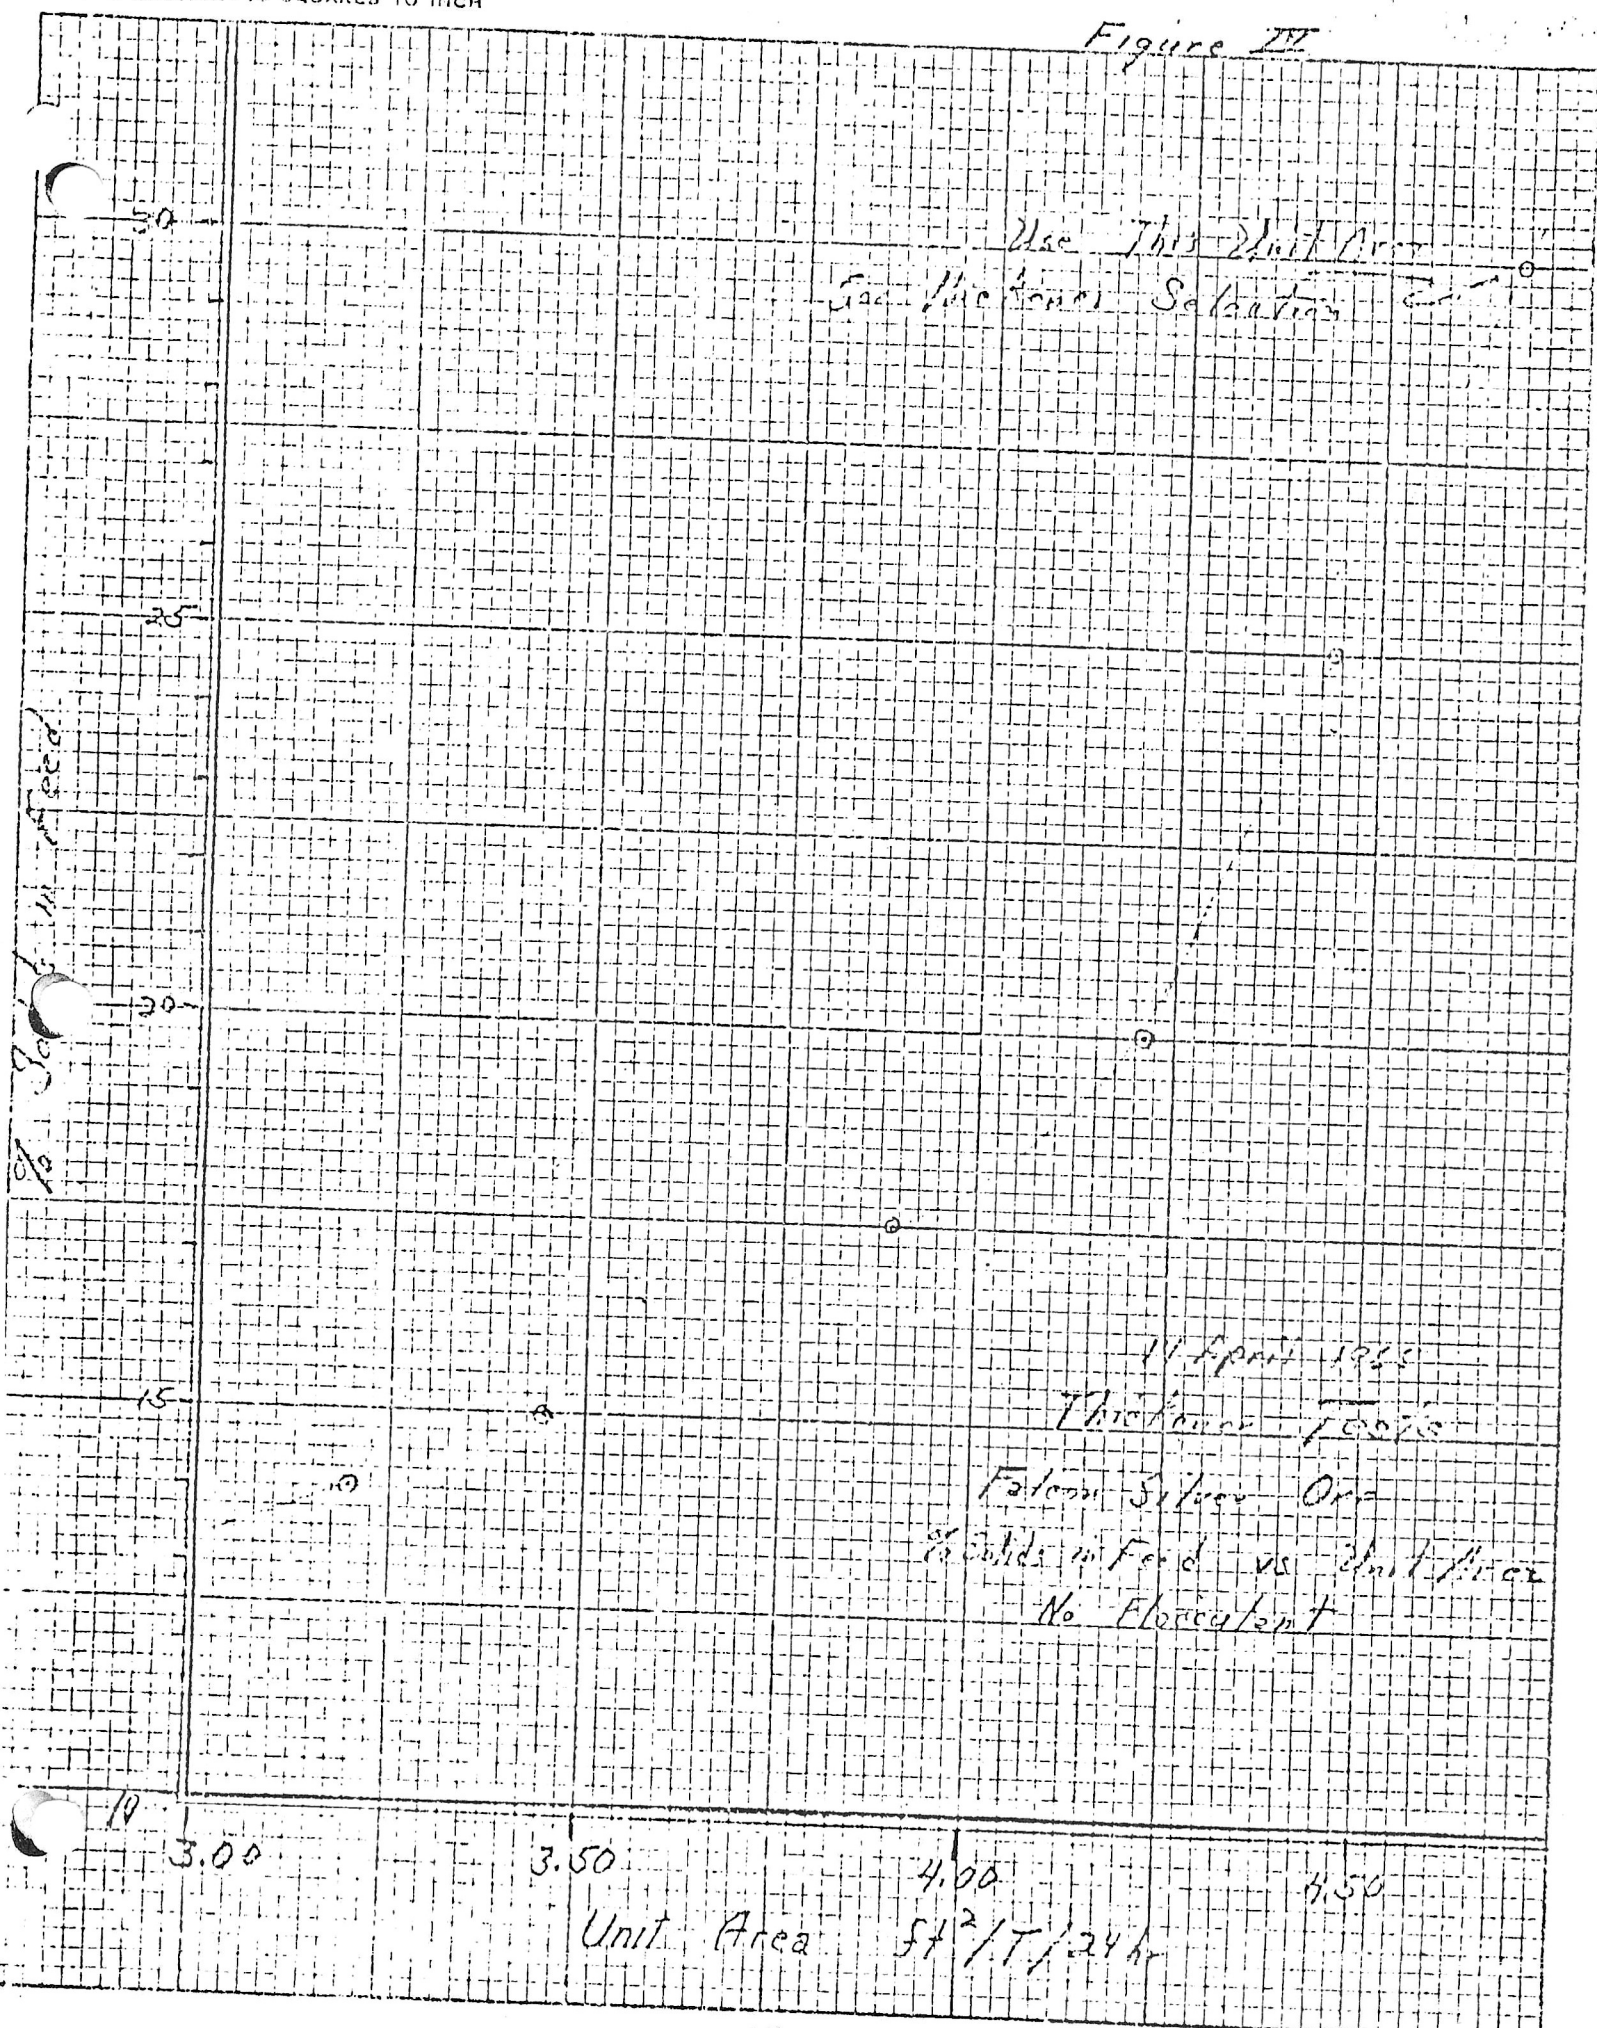 SQUARES TO INCH
Figure III
30
Use This Unit Area
For Thickener Selection
25
% Solids in Feed
20
11 April
15
Thickener Tests
Falcon Silver Ore
% Solids in Feed vs Unit Area
No Flocculant
10
3.00 3.50 4.00 4.50
Unit Area ft²/T/24 hr